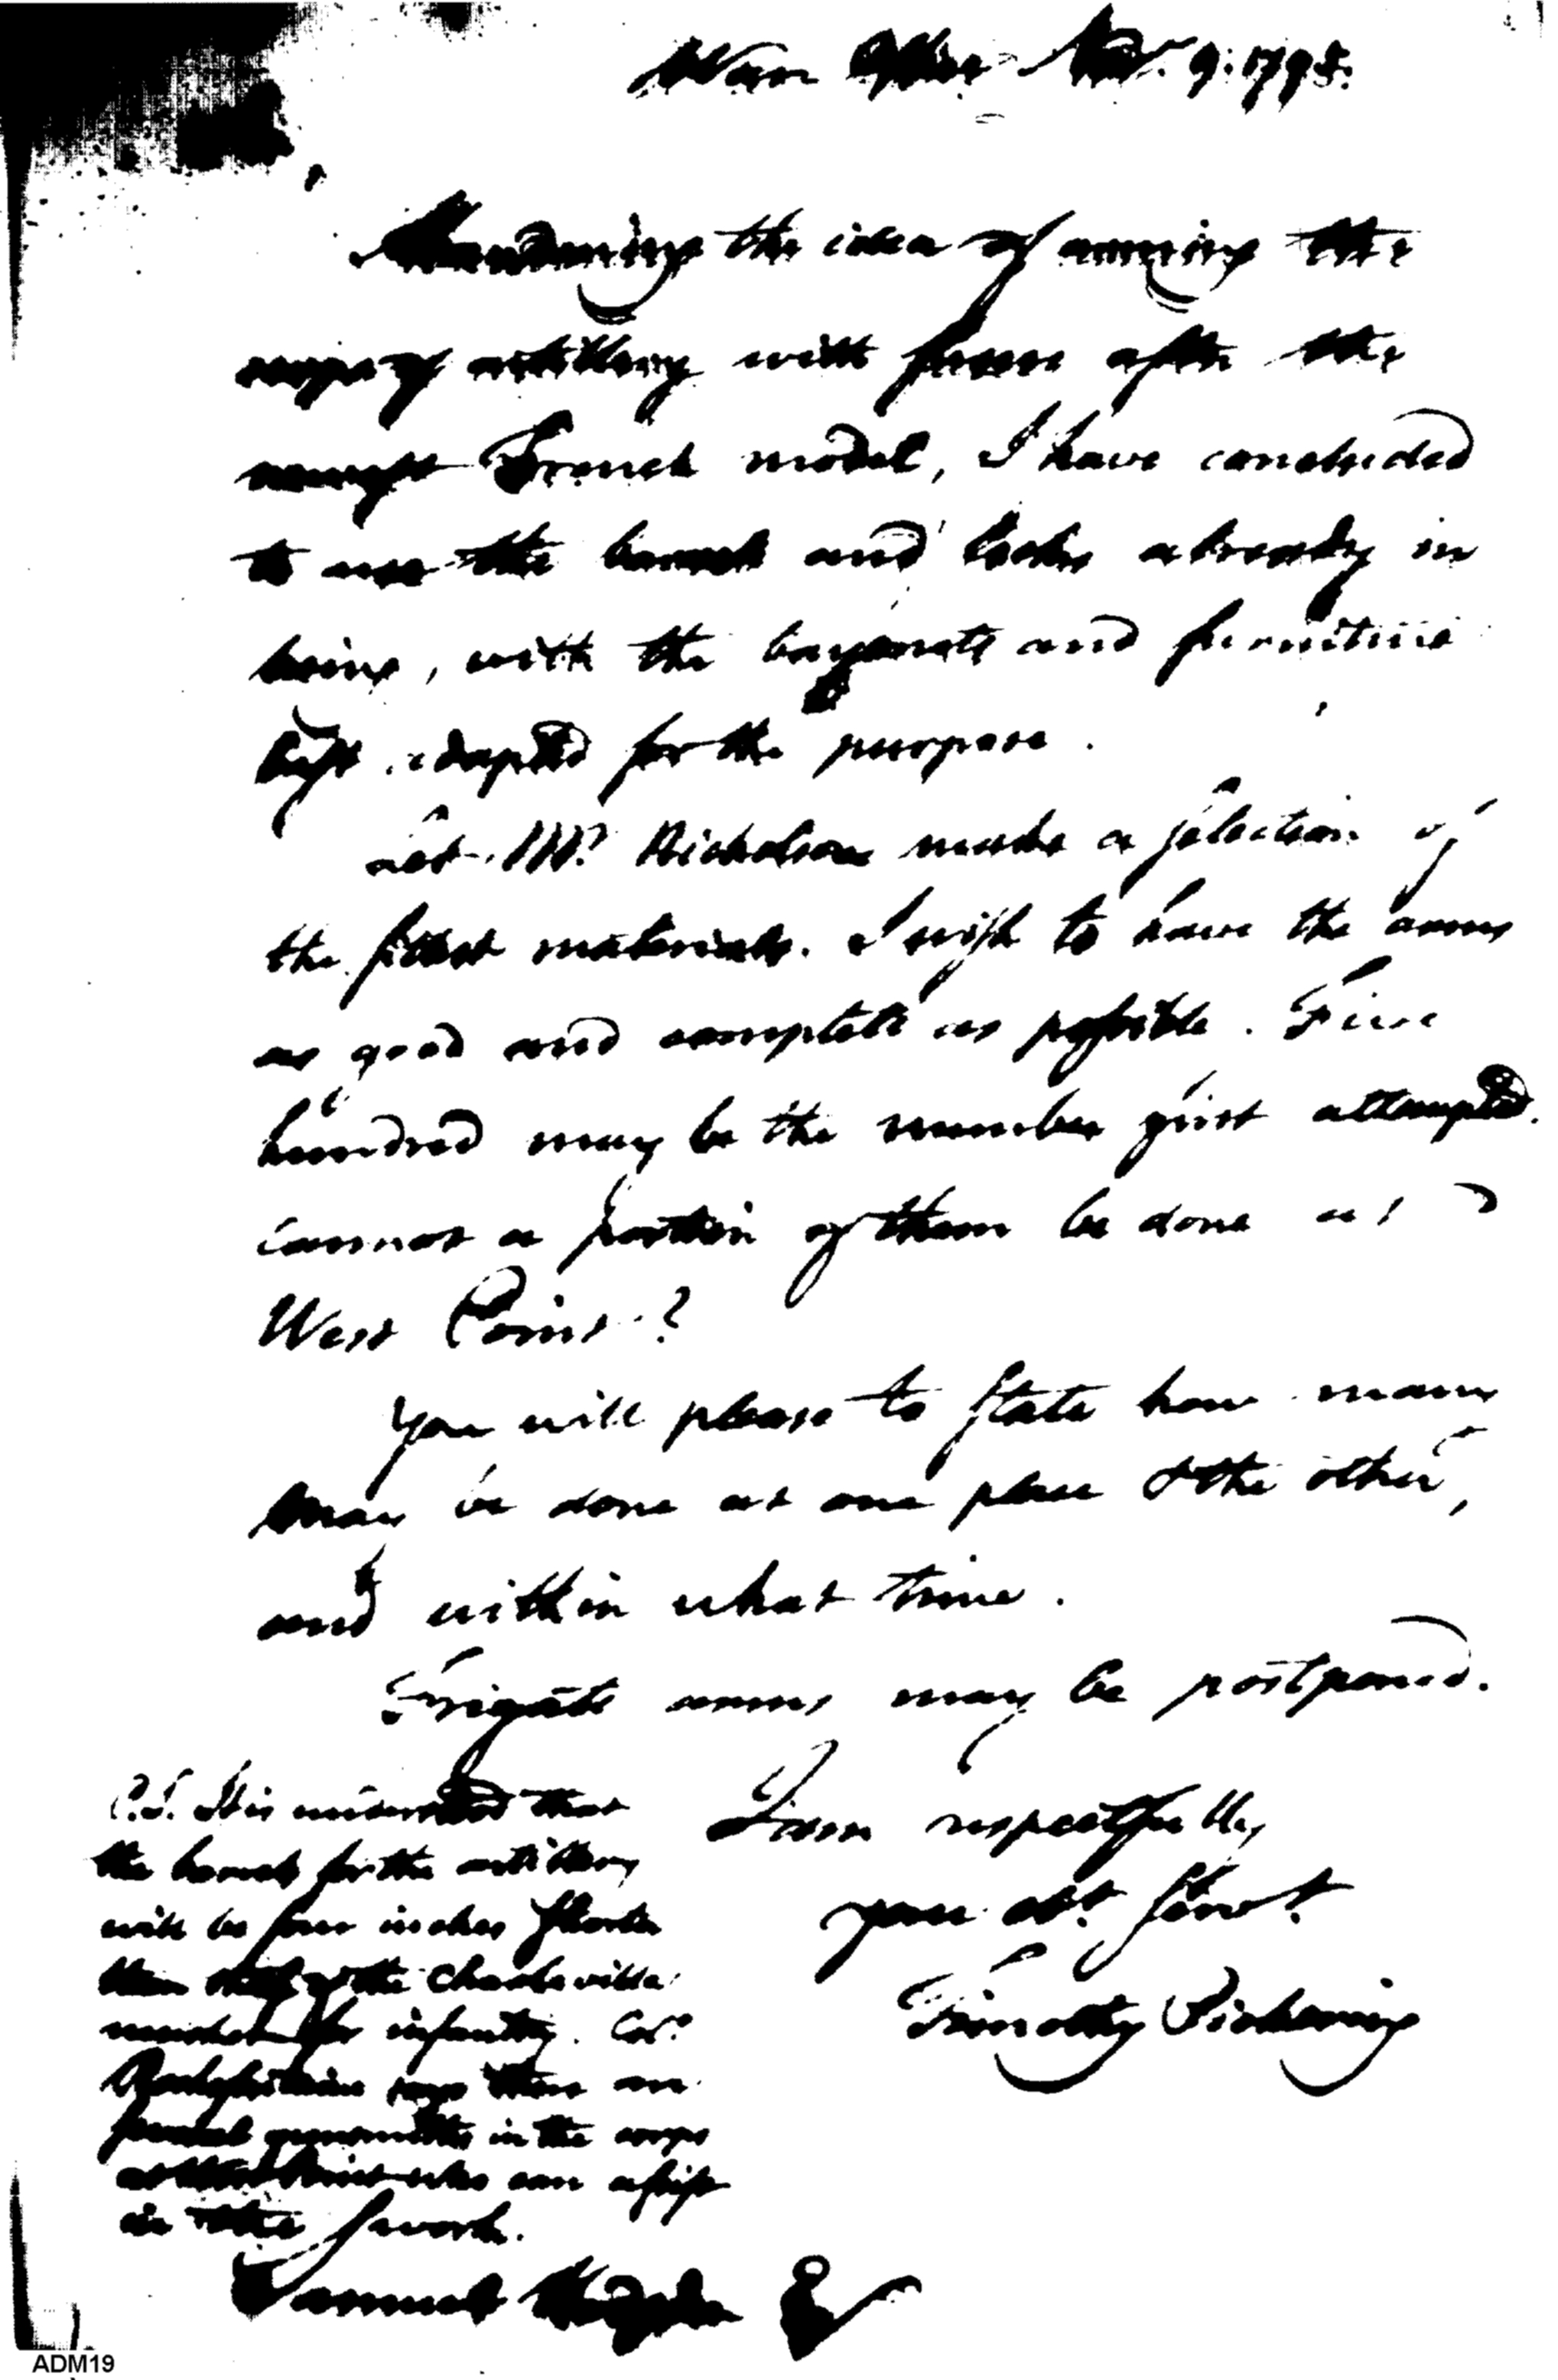 War Office Nov. 9. 1795.
Abandoning the idea of arming the
corps of artillery with fusees after the
newest French model, I have concluded
to use the barrels and locks already in
being, with the bayonets and furniture
best adapted for the purpose.
Let Mr. Nicholson make a selection of
the fittest materials. I wish to have the arms
as good and complete as possible. Five
hundred may be the number first attempted.
Cannot a portion of them be done at
West Point?
You will please to state how many
may be done at one place & the other,
and within what time.
Frigate arms may be postponed.
I am respectfully
your obt. servt.
Timothy Pickering
P.S. It is understood that
the barrels for the artillery
will be four inches shorter
than those of the Charleville
musket for infantry. Col.
says there are
several armourers in the corps
artillerists who can assist
in the work.
Samuel Hodgdon Esqr
ADM19